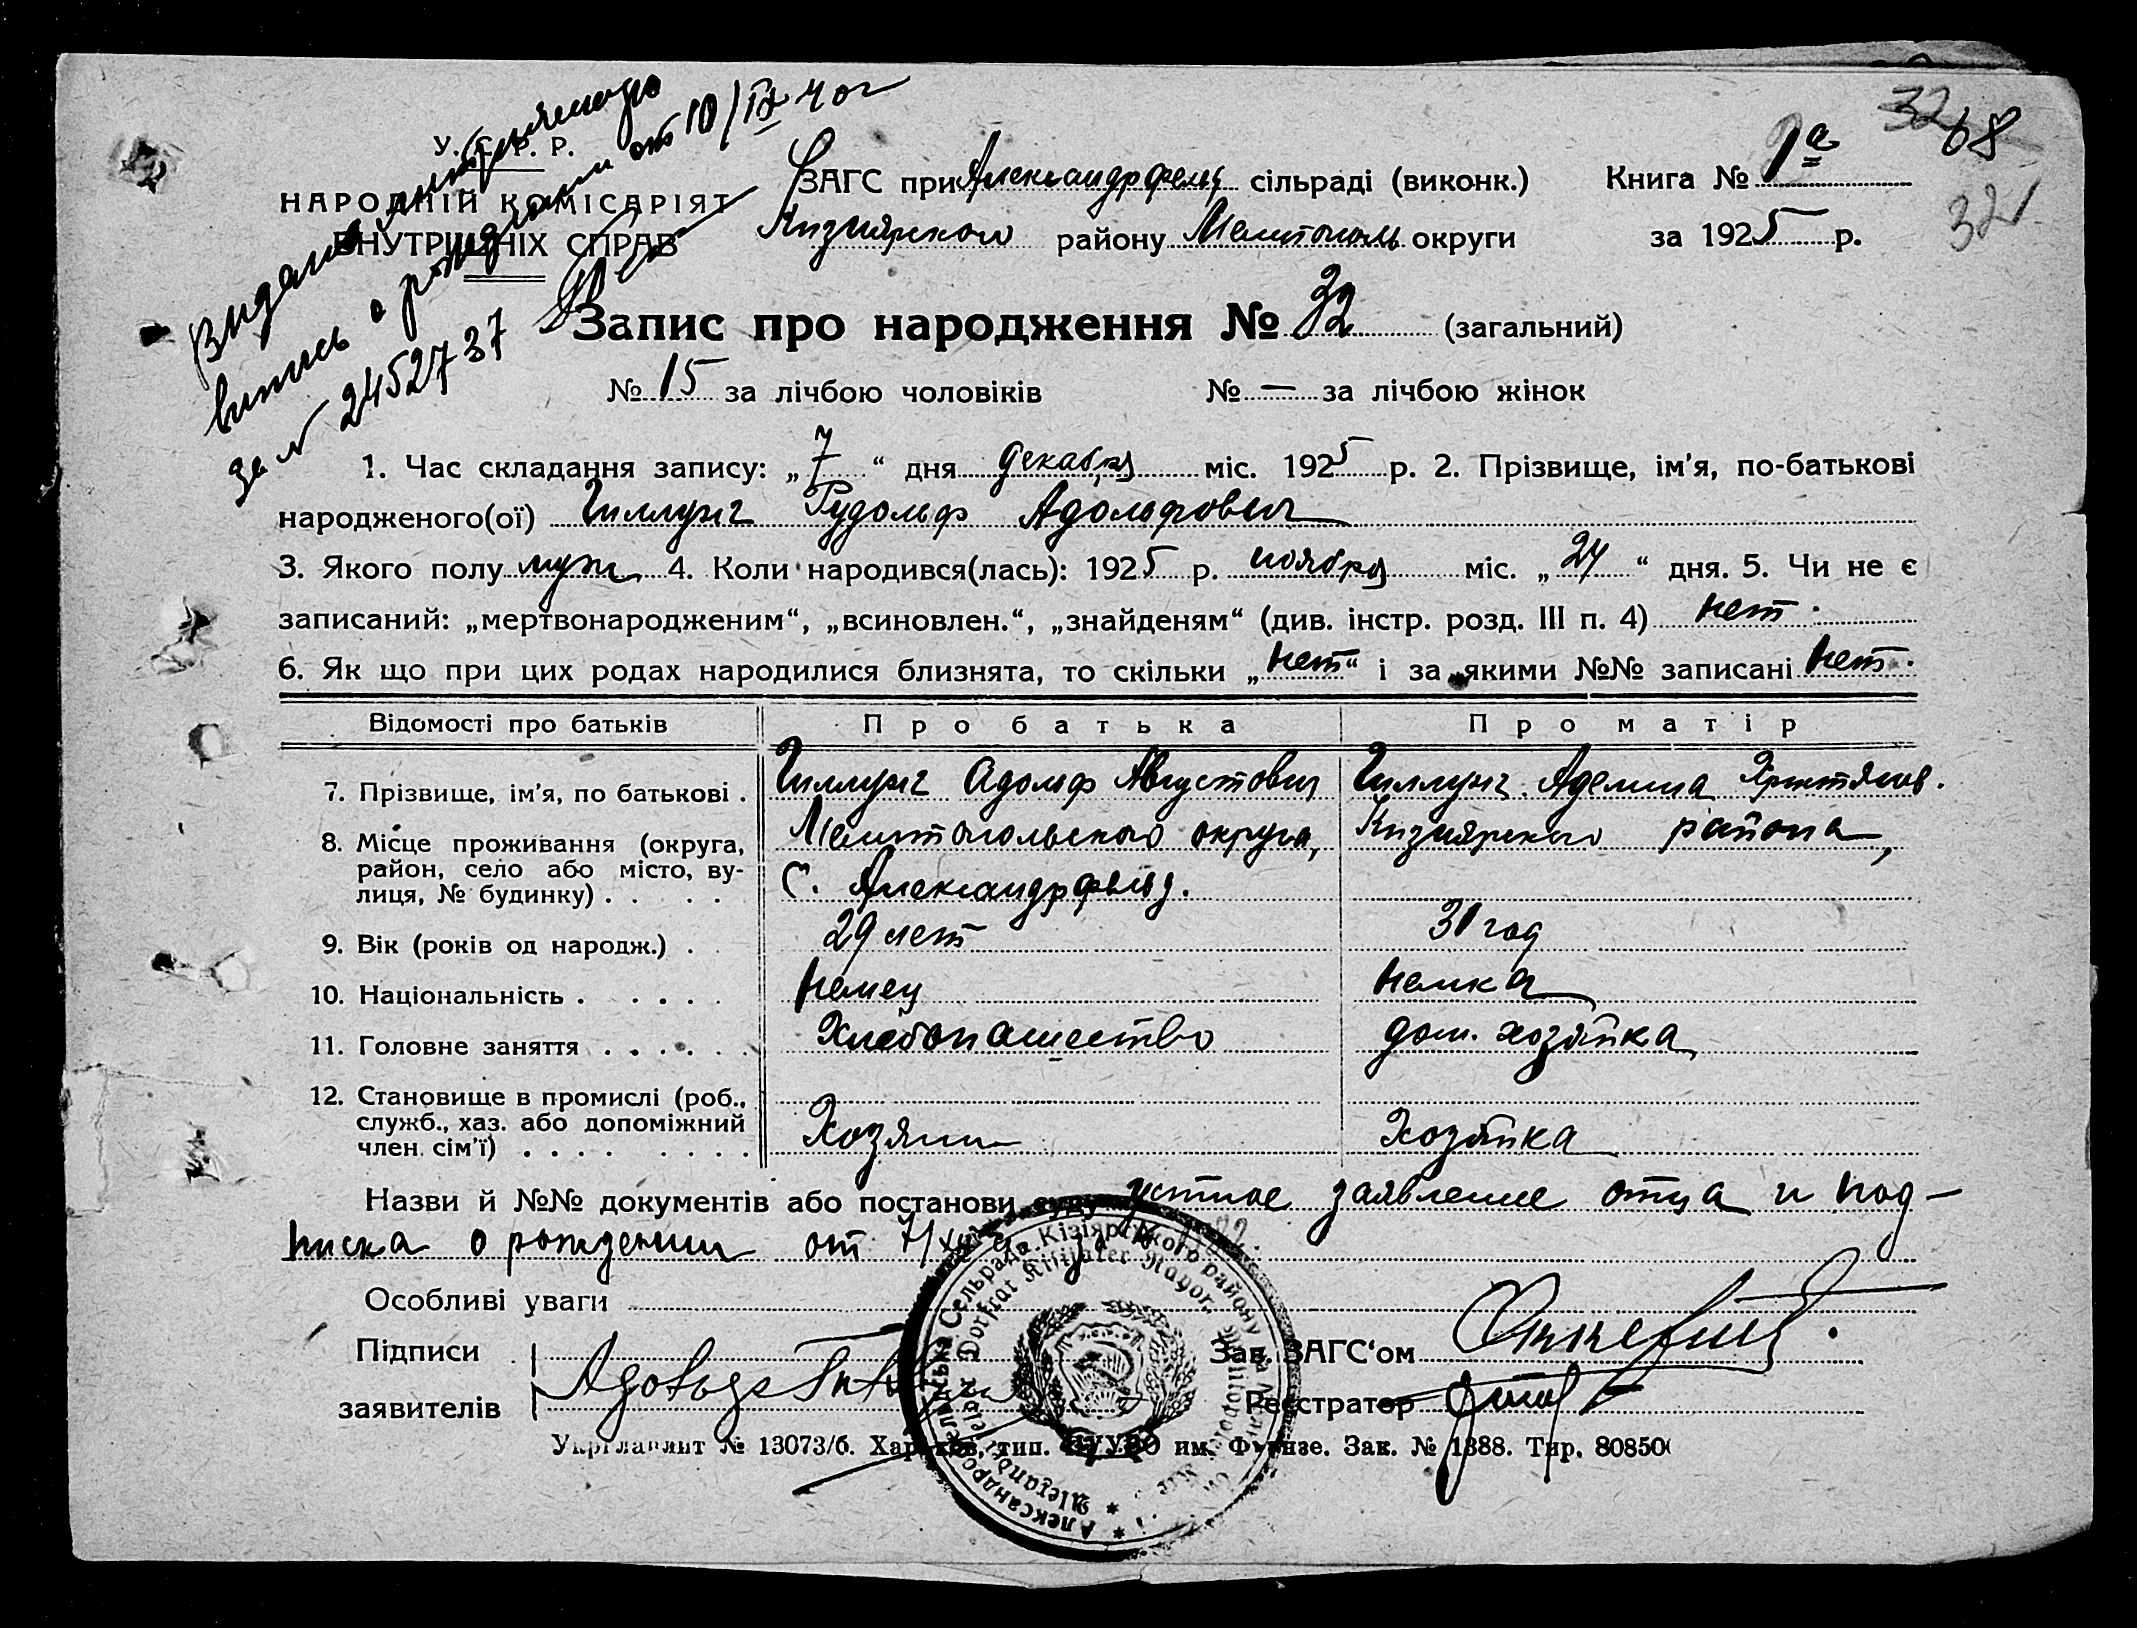 32 68
321
Видано
выпись о рождении от 10/IX 40г
за № 2452737
У. С. Р. Р.
НАРОДНІЙ КОМІСАРІЯТ
ВНУТРІШНІХ СПРАВ
ЗАГС при Александрфельд сільраді (виконк.) Книга № 1а
Кизиярского району Мелитополь округи за 1925 р.
Запис про народження № 32 (загальний)
№ 15 за лічбою чоловіків № — за лічбою жінок
1. Час складання запису: „7“ дня декабря міс. 1925 р. 2. Прізвище, ім’я, по-батькові
народженого(ої) Гиллунг Рудольф Адольфович
3. Якого полу муж 4. Коли народився(лась): 1925 р. ноября міс. „24“ дня. 5. Чи не є
записаний: „мертвонародженим“, „всиновлен.“, „знайденям“ (див. інстр. розд. III п. 4) нет.
6. Як що при цих родах народилися близнята, то скільки „нет“ і за якими №№ записані нет.
Відомості про батьків Про батька Про матір
7. Прізвище, ім’я, по батькові . Гиллунг Адольф Августович Гиллунг Аделина Христианов.
8. Місце проживання (округа, Мелитопольского округа, Кизиярского района,
район, село або місто, ву- С. Александрфельд.
лиця, № будинку) . . . . .
9. Вік (років од народж.) . 29 лет 31 год
10. Національність . . . . . немец немка
11. Головне заняття . . . . . . Хлебопашество дом. хозяйка
12. Становище в промислі (роб.,
служб., хаз. або допоміжний Хозяин Хозяйка
член. сім’ї) . . . . . . . .
Назви й №№ документів або постанови суду устное заявление отца и под-
писка о рождении от 7/XII
Особливі уваги
Підписи Зав. ЗАГС‘ом
заявителів Адольф Реєстратор
Укрглавліт № 13073/6. Харьков, тип. им. Фрунзе. Зак. № 1388. Тир. 80850
Александрофельдська Сельрада Кізіярського району на
Alexandrofelder Dorfrat Kisijarer Rayon